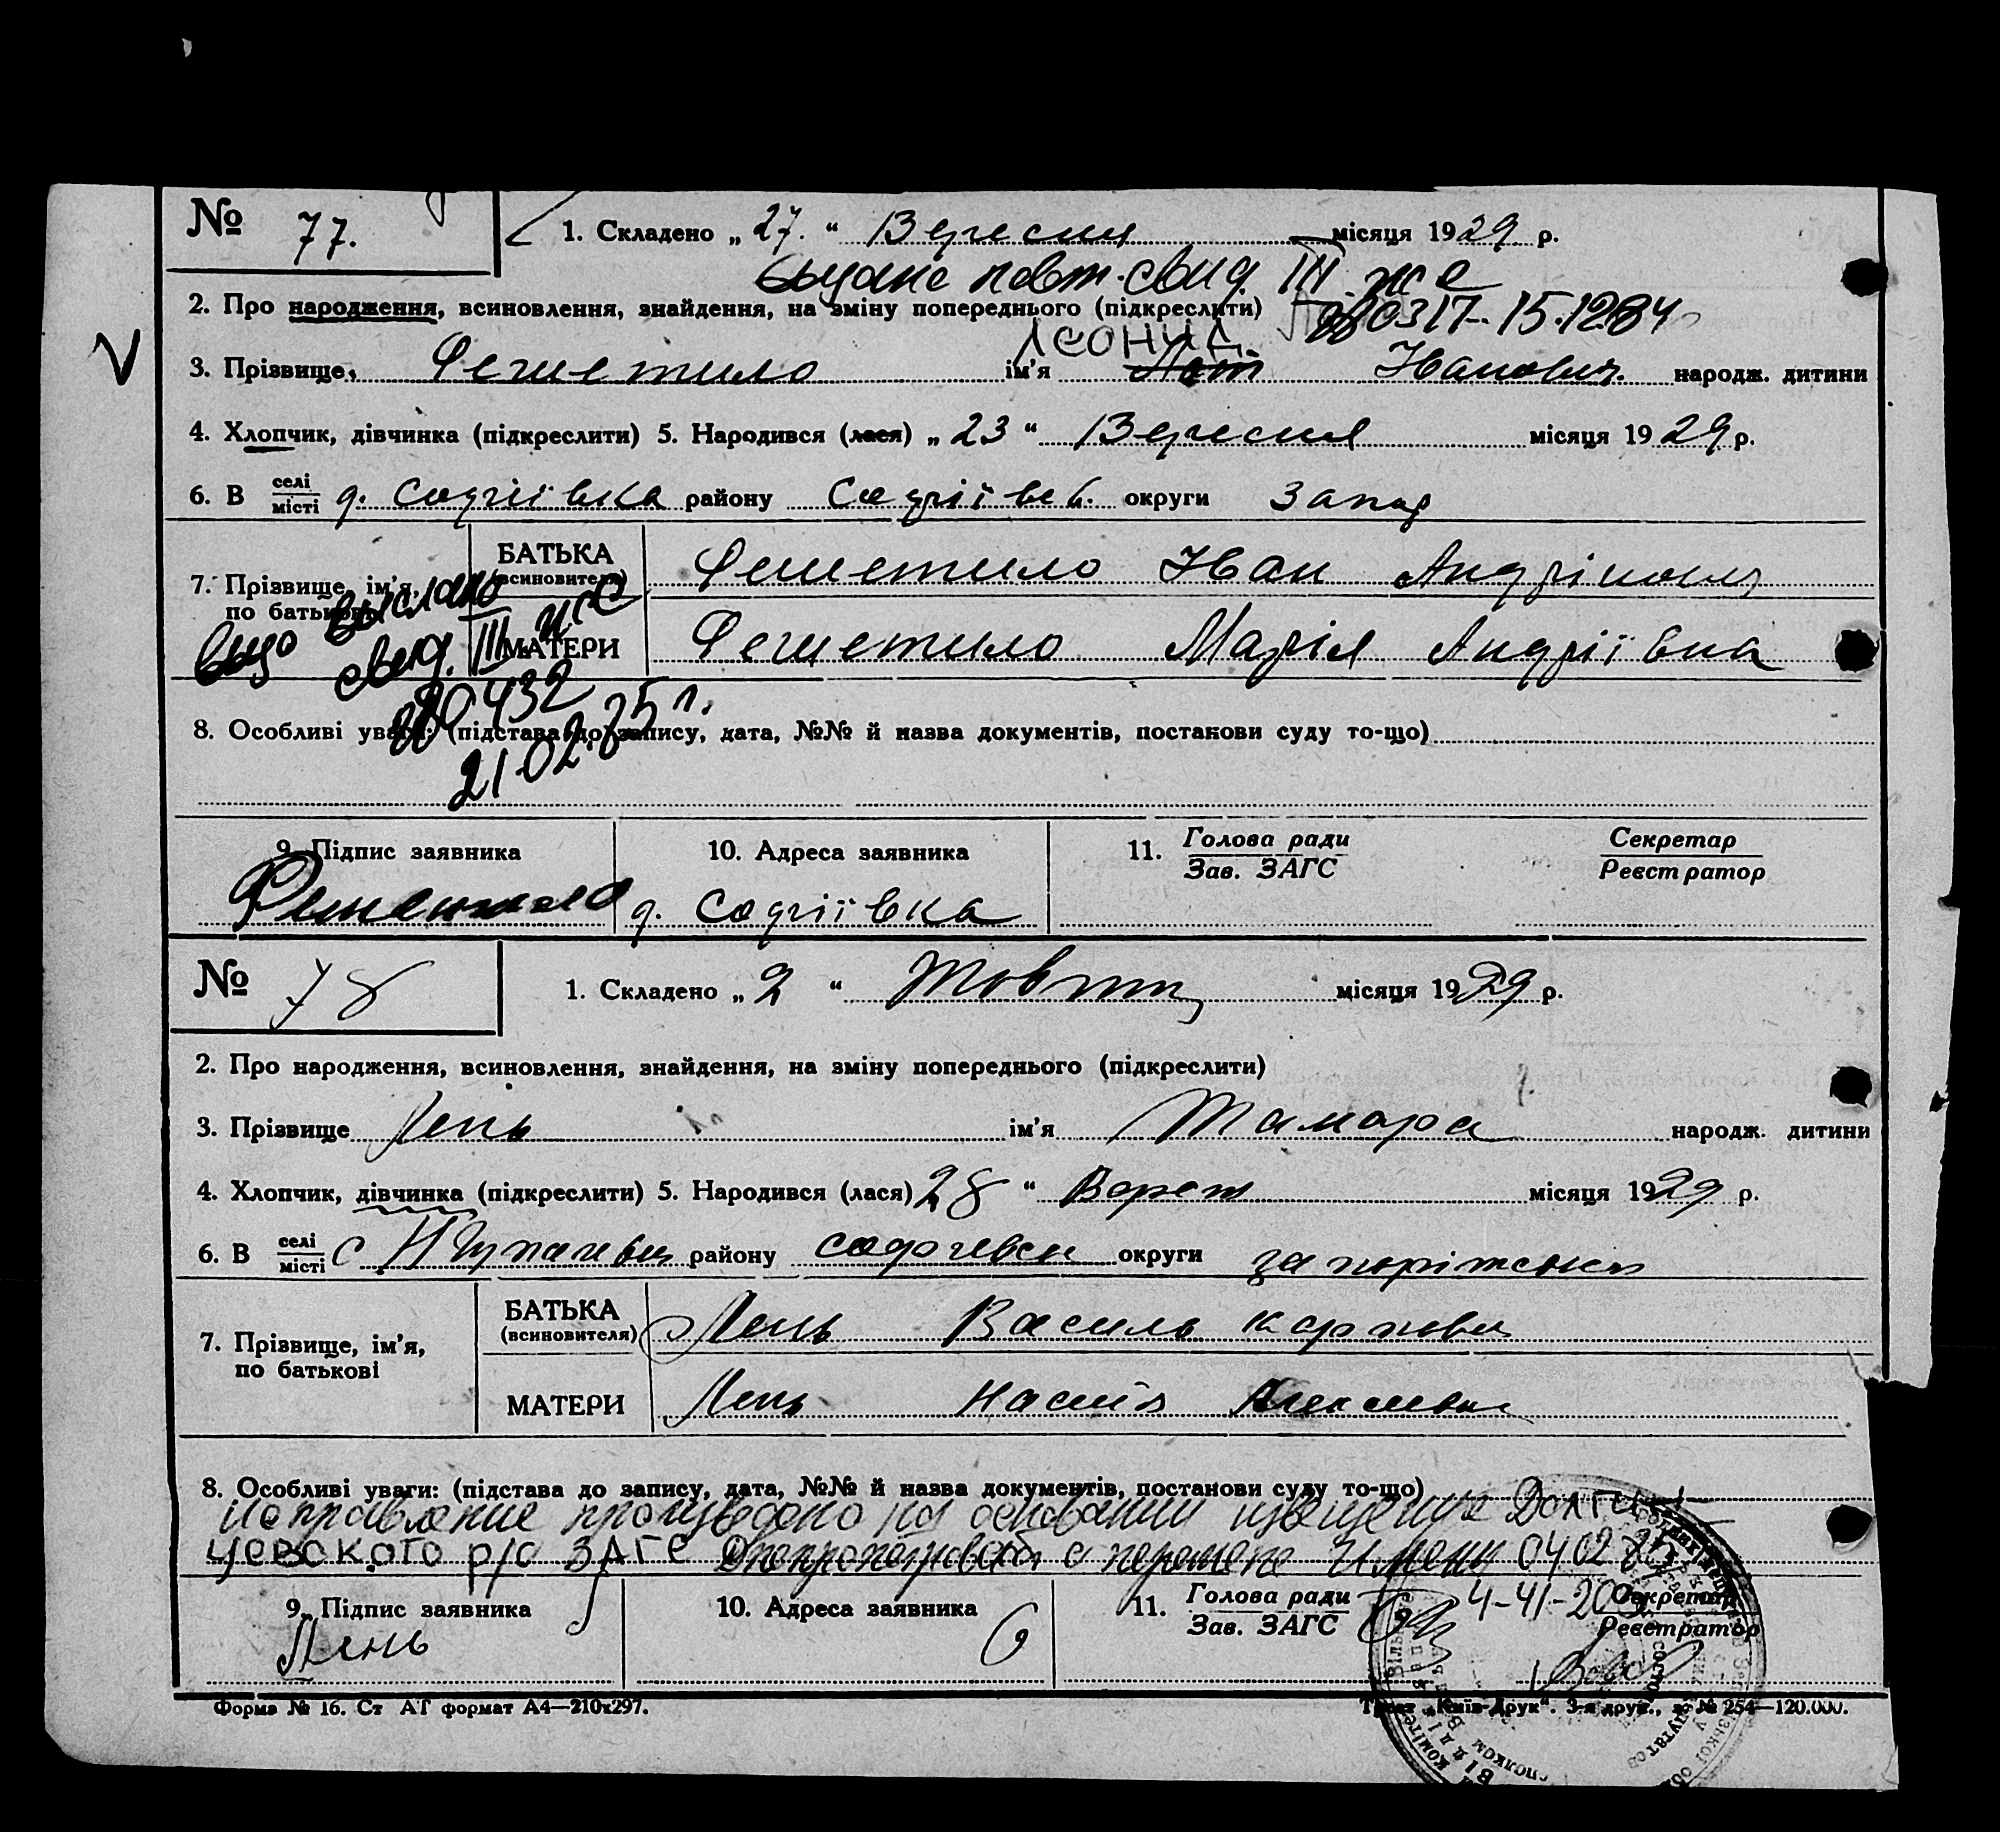 № 77. 1. Складено „ 27. “ Вересня місяця 1929 р.
повт. свид. III жс
2. Про народження, всиновлення, знайдення, на зміну попереднього (підкреслити) 15.12.84
ЛЕОНИД
3. Прізвище, Решетило ім'я Іванович. народж. дитини
4. Хлопчик, дівчинка (підкреслити) 5. Народився (лася) „ 23 “ Вересня місяця 1929 р.
6. В селі місті району округи Запор
7. Прізвище, ім'я, по батькові
БАТЬКА (всиновителя) Решетило Іван Андріянович
МАТЕРИ Решетило Марія Андріївна
выслано
свид. III жс
21.02.85 г.
8. Особливі уваги: (підстава до запису, дата, №№ й назва документів, постанови суду то-що)
9. Підпис заявника 10. Адреса заявника 11. Голова ради Зав. ЗАГС Секретар Реєстратор
Решетило
№ 78 1. Складено „ 2 “ Жовтня місяця 1929 р.
2. Про народження, всиновлення, знайдення, на зміну попереднього (підкреслити)
3. Прізвище Лень ім'я Тамара народж. дитини
4. Хлопчик, дівчинка (підкреслити) 5. Народився (лася) 28 “ Верес місяця 1929 р.
6. В селі місті с району округи запоріжськ
7. Прізвище, ім'я, по батькові
БАТЬКА (всиновителя) Лень Василь Карпович
МАТЕРИ Лень Настя
8. Особливі уваги: (підстава до запису, дата, №№ й назва документів, постанови суду то-що)
Исправление произведено на основании извещения Долгин
цевского р/о ЗАГС о перемене имени 04 02
9. Підпис заявника 10. Адреса заявника 11. Голова ради Зав. ЗАГС Секретар Реєстратор
Лень
Форма № 16. Ст АГ формат А4—210x297. Трест „Київ-Друк“. 3-я друк., з. № 254—120.000.